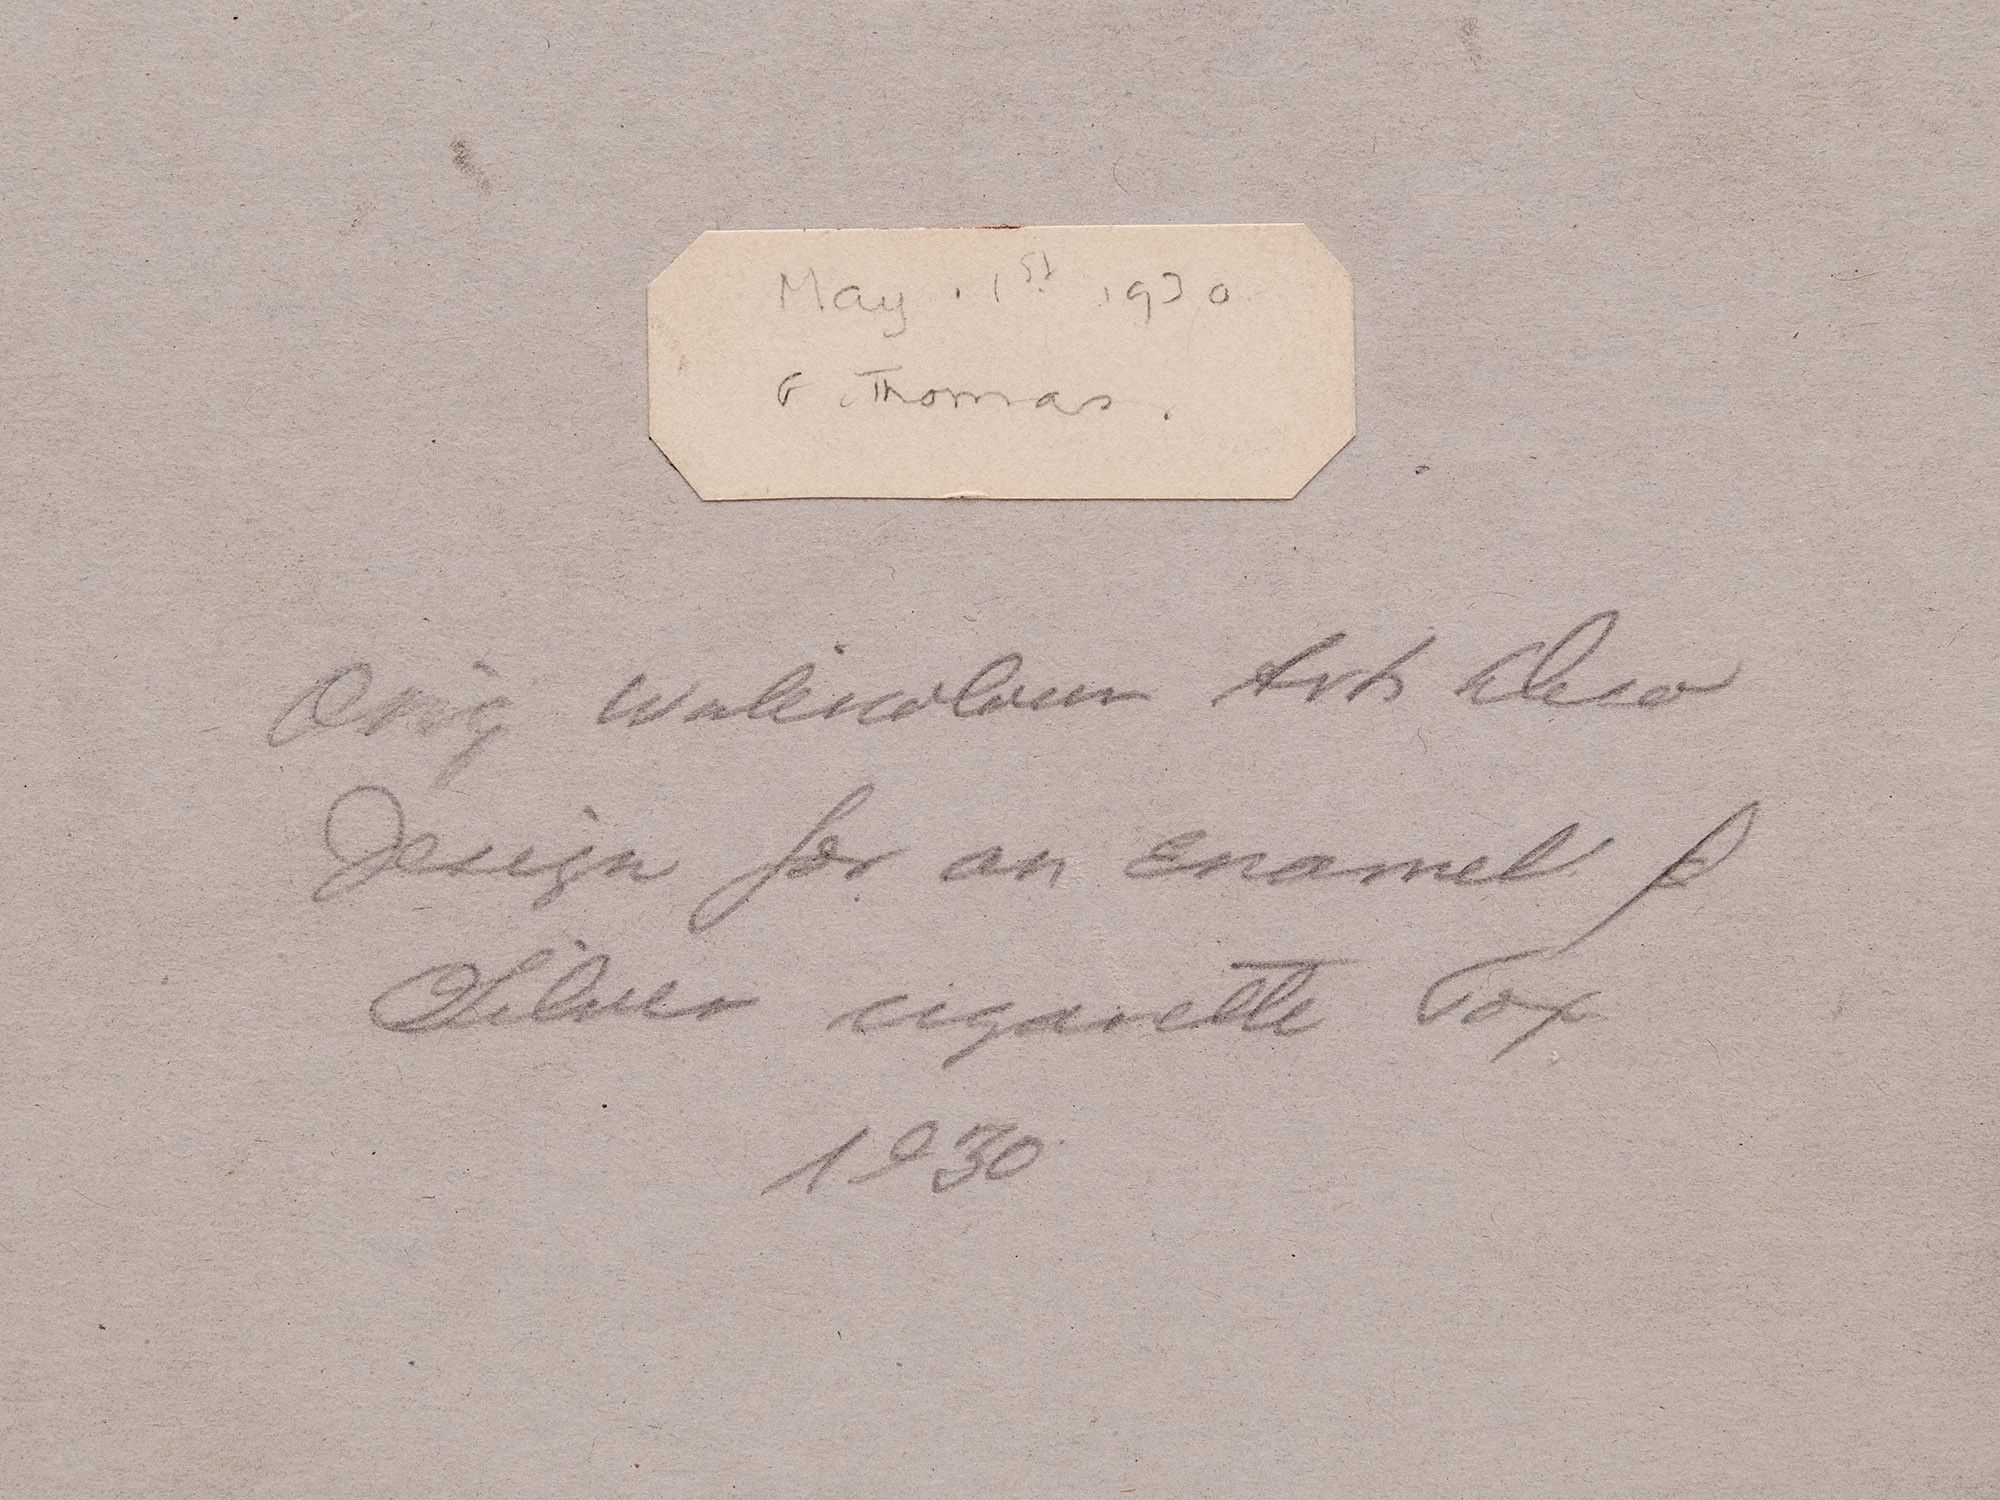 May . 1st 1930
G. Thomas.
Orig watercolour Art Deco
Design for an enamel &
Silver cigarette Box
1930